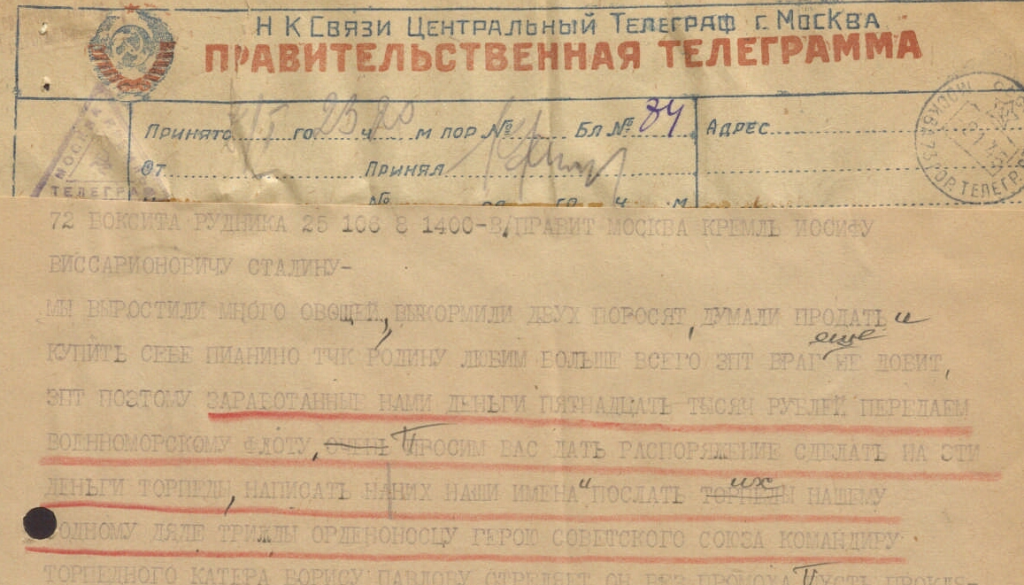 Н К Связи Центральный Телеграф г. Москва
ПРАВИТЕЛЬСТВЕННАЯ ТЕЛЕГРАММА
МОСКВА
ТЕЛЕГРАФ
Принято 15 го 23 ч 20 м пор № Бл № 84 Адрес
От Принял
№ го ч м
72 БОКСИТА РУДНИКА 25 106 8 1400-В/ПРАВИТ МОСКВА КРЕМЛЬ ИОСИФУ
ВИССАРИОНОВИЧУ СТАЛИНУ-
МЫ ВЫРОСТИЛИ МНОГО ОВОЩЕЙ, ВЫКОРМИЛИ ДВУХ ПОРОСЯТ, ДУМАЛИ ПРОДАТЬ и
еще
КУПИТЬ СЕБЕ ПИАНИНО ТЧК РОДИНУ ЛЮБИМ БОЛЬШЕ ВСЕГО ЗПТ ВРАГ НЕ ДОБИТ,
ЗПТ ПОЭТОМУ ЗАРАБОТАННЫЕ НАМИ ДЕНЬГИ ПЯТНАДЦАТЬ ТЫСЯЧ РУБЛЕЙ ПЕРЕДАЕМ
ВОЕННОМОРСКОМУ ФЛОТУ, ОЧЕНЬ ПРОСИМ ВАС ДАТЬ РАСПОРЯЖЕНИЕ СДЕЛАТЬ НА ЭТИ
их
ДЕНЬГИ ТОРПЕДЫ, НАПИСАТЬ НАНИХ НАШИ ИМЕНА "ПОСЛАТЬ ТОРПЕДЫ НАШЕМУ
РОДНОМУ ДЯДЕ ТРИЖДЫ ОРДЕНОНОСЦУ ГЕРОЮ СОВЕТСКОГО СОЮЗА КОМАНДИРУ
ТОРПЕДНОГО КАТЕРА БОРИСУ ПАВЛОВУ СТРЕЛЯЕТ ОН БЕЗ ПРОМОХА ПУСТЬ